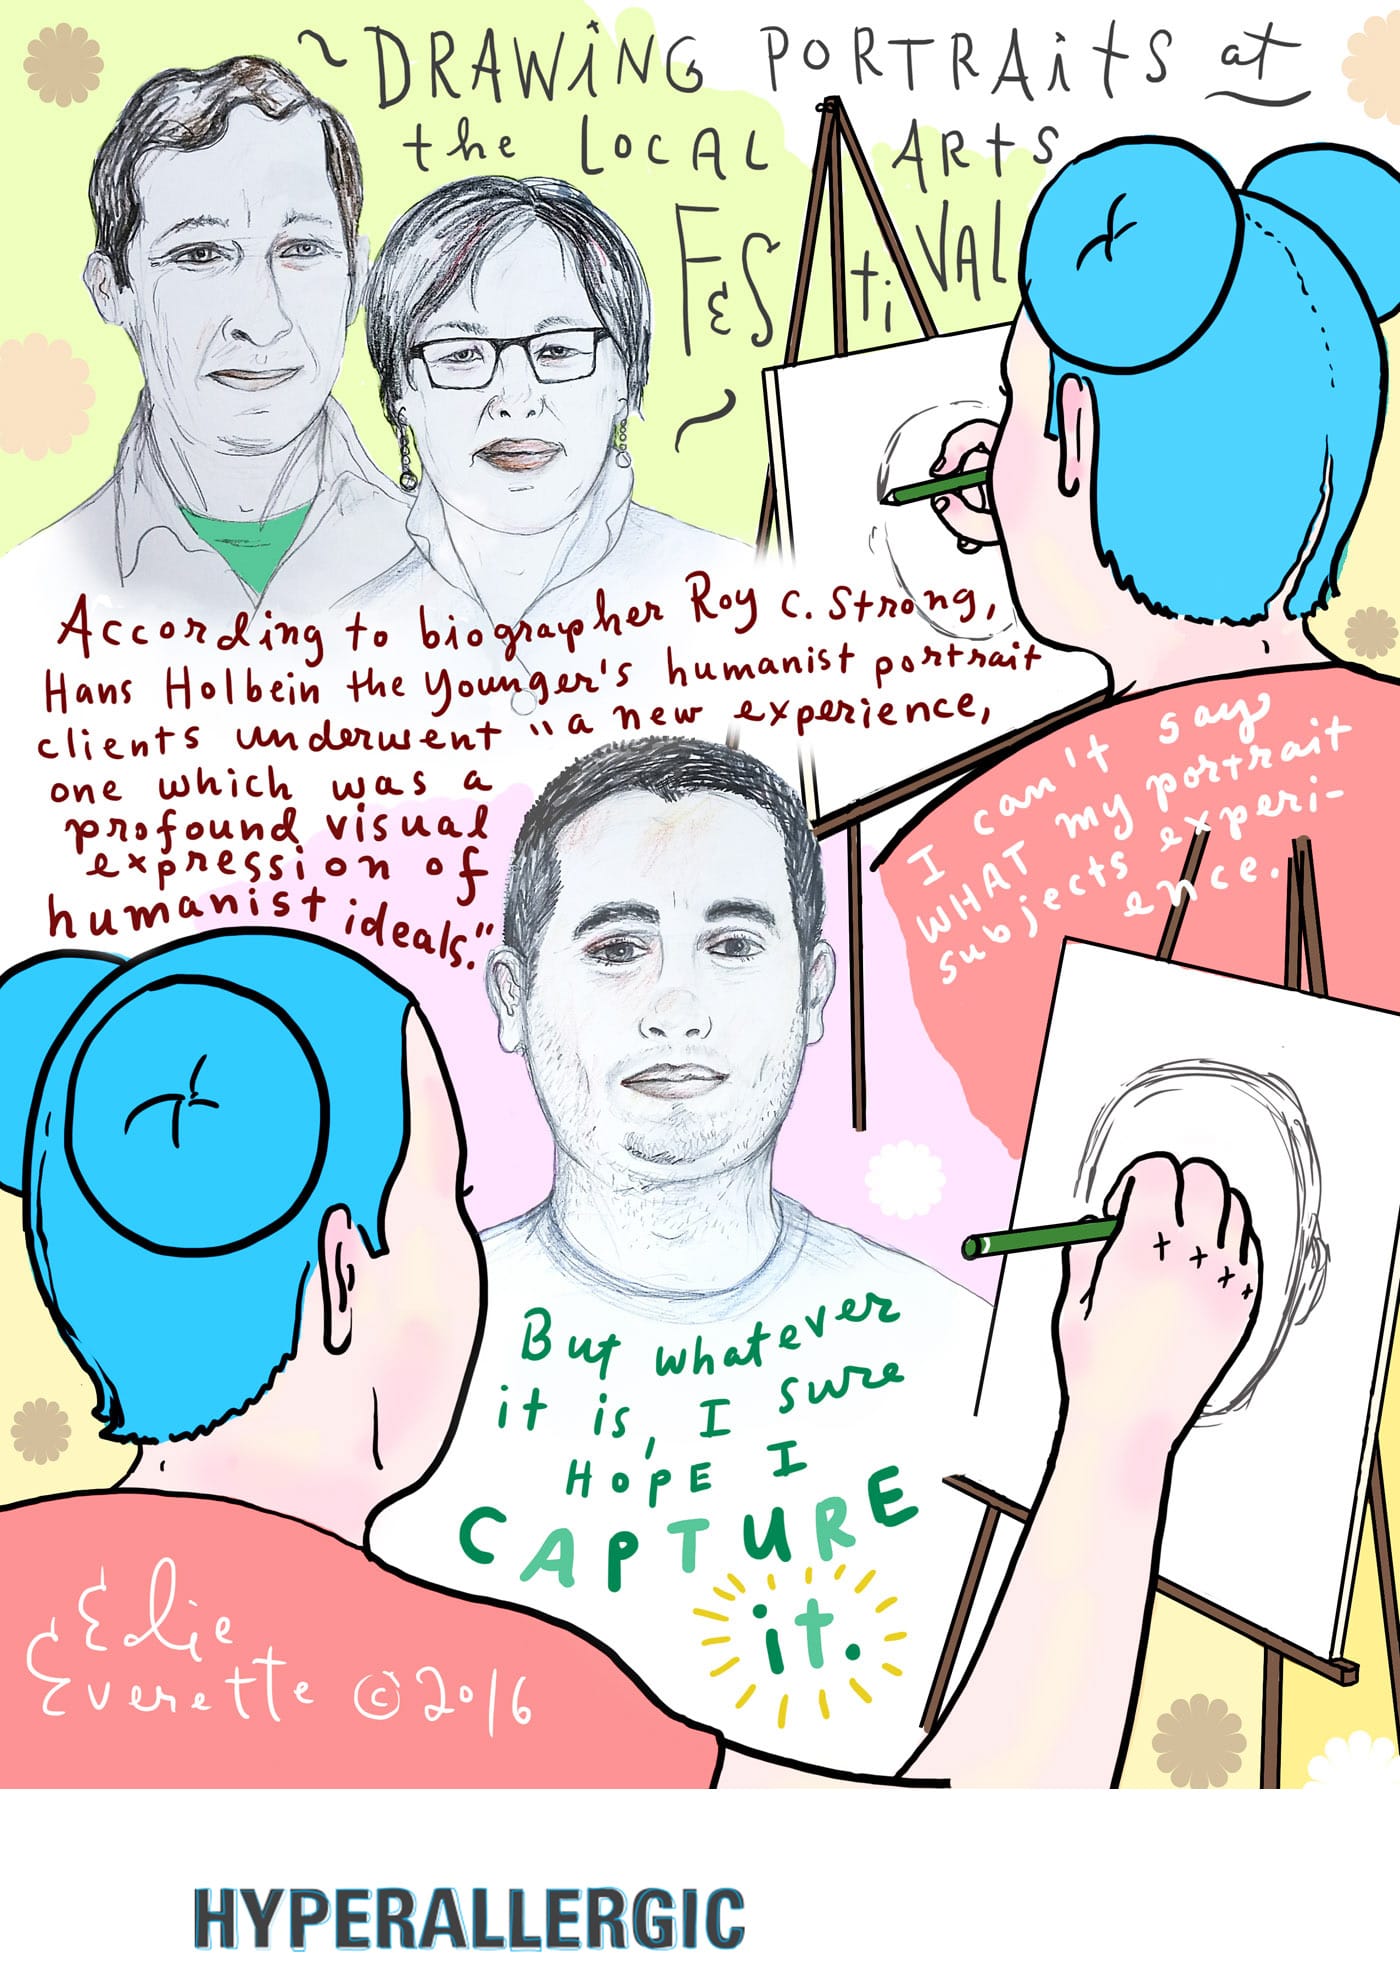 ~ DRAWING PORTRAITS at
the LOCAL ARTS
FEStiVAL ~
According to biographer Roy C. Strong,
Hans Holbein the Younger's humanist portrait
clients underwent "a new experience,
one which was a
profound visual
expression of
humanist ideals."
I can't say
WHAT my portrait
subjects experi-
ence.
But whatever
it is, I sure
HOPE I
CAPTURE
it.
Edie
Everette © 2016
HYPERALLERGIC